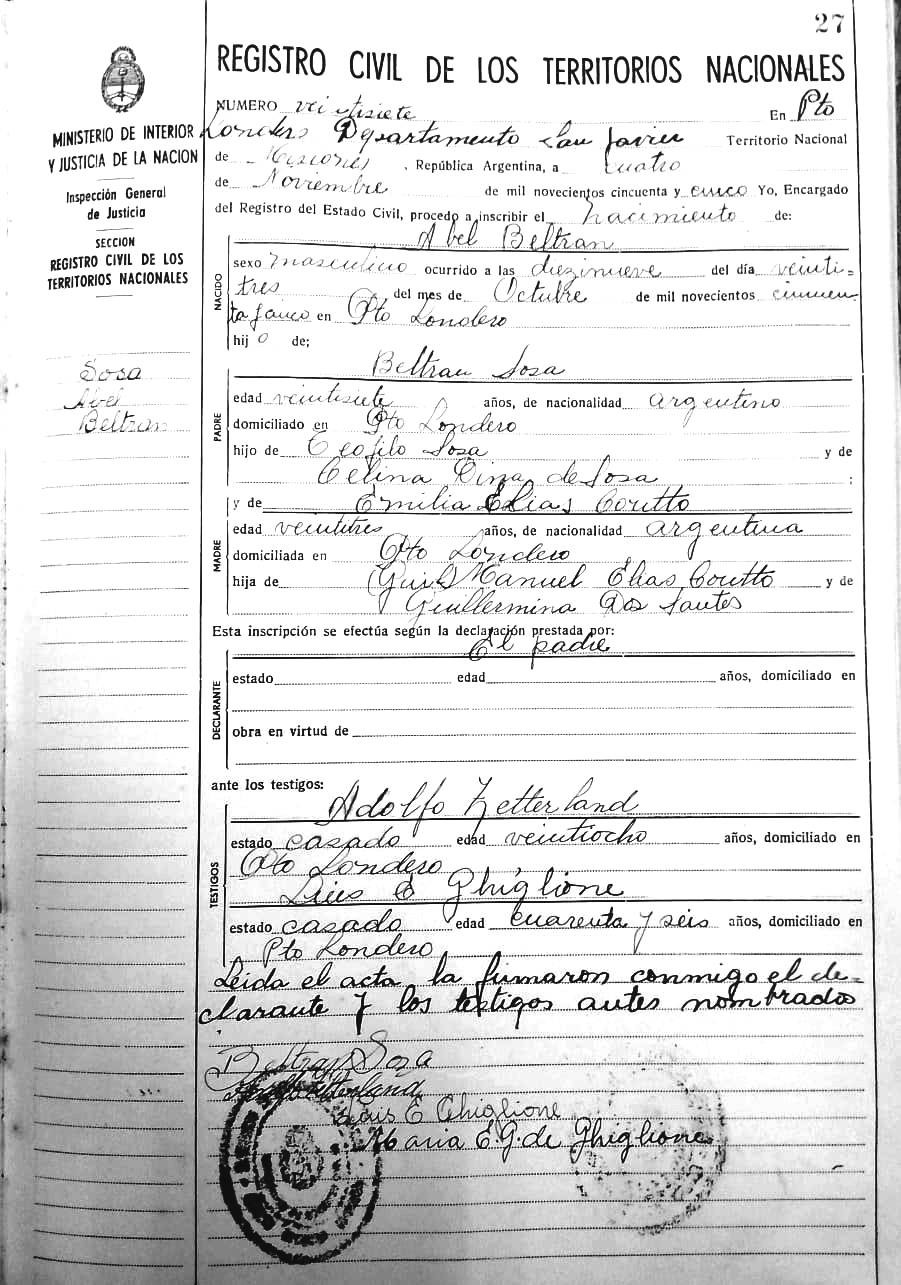 27
REGISTRO CIVIL DE LOS TERRITORIOS NACIONALES
MINISTERIO DE INTERIOR
Y JUSTICIA DE LA NACION
Inspección General
de Justicia
SECCION
REGISTRO CIVIL DE LOS
TERRITORIOS NACIONALES
Sosa
Abel
Beltran
NUMERO veintisiete En Pto
Londero Departamento San Javier Territorio Nacional
de Misiones, República Argentina, a cuatro
de Noviembre de mil novecientos cincuenta y cinco Yo, Encargado
del Registro del Estado Civil, procedo a inscribir el nacimiento de:
Abel Beltran
NACIDO
sexo masculino ocurrido a las diezinueve del día veinti-
tres del mes de Octubre de mil novecientos cincuen-
ta y cinco en Pto Londero
hijo de;
Beltran Sosa
PADRE
edad veintisiete años, de nacionalidad argentino
domiciliado en Pto Londero
hijo de Teofilo Sosa y de
Celina de Sosa ;
y de Emilia Elias Coutto
MADRE
edad veintitres años, de nacionalidad argentina
domiciliada en Pto Londero
hija de (Guil) Manuel Elias Coutto y de
Guillermina Dos Santos
Esta inscripción se efectúa según la declaración prestada por:
El padre
DECLARANTE
estado edad años, domiciliado en
obra en virtud de
ante los testigos:
Adolfo Zetterland
TESTIGOS
estado casado edad veintiocho años, domiciliado en
Pto Londero
Luis E Ghiglione
estado casado edad cuarenta y seis años, domiciliado en
Pto Londero
Leida el acta la firmaron conmigo el de-
clarante y los testigos antes nombrados
Beltran Sosa
Adolfo Zetterland
Luis E Ghiglione
Maria E G. de Ghiglione